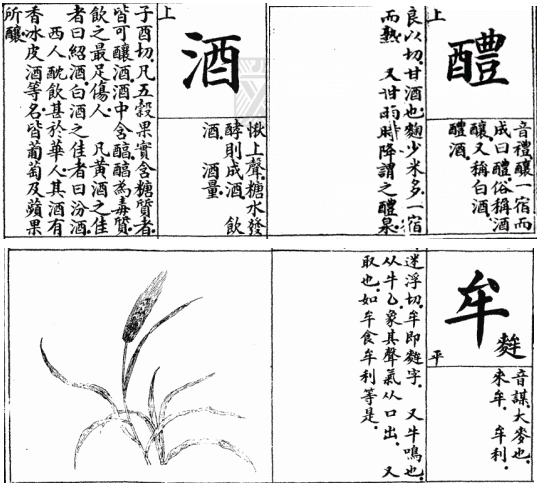 上
醴
音禮.釀一宿而
成曰醴.俗稱酒
釀.又稱白酒.
醴酒.
良以切.甘酒也.麴少米多.一宿
而熟 又甘雨時降謂之醴泉.
上
酒
愀上聲.糖水發
酵則成酒. 飲
酒. 酒量
子酉切.凡五穀果實含糖質者.
皆可釀酒.酒中含醕.醕為毒質.
飲之最足傷人 凡黃酒之佳
者曰紹酒.白酒之佳者曰汾酒.
西人酖飲甚於華人.其酒有
香冰皮酒等名.皆葡萄及蘋果
所釀.
牟
麰
平
音謀.大麥也.
來牟. 牟利.
迷浮切.牟即麰字. 又牛鳴也.
从牛厶.象其聲氣从口出. 又
取也.如牟食牟利等是.